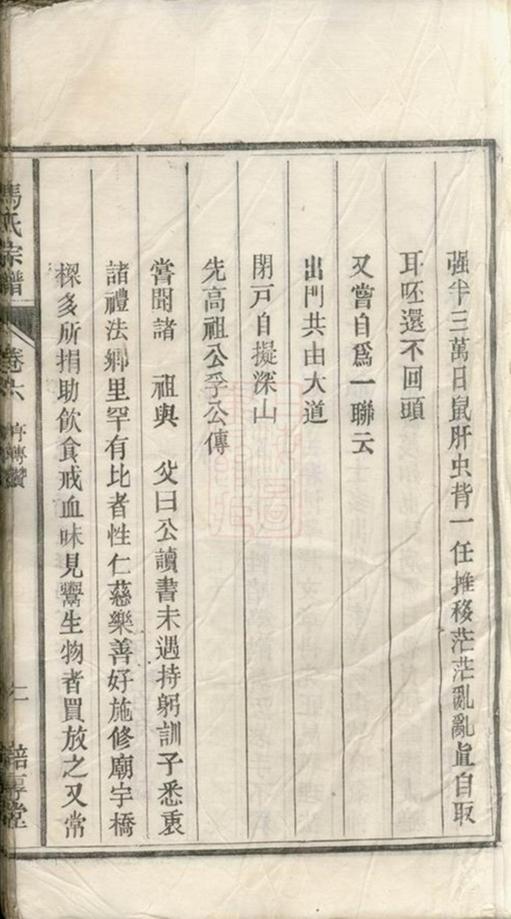 强半三萬日鼠肝虫背一任推移茫茫亂亂眞自取
耳呸還不回頭
又嘗自爲一聯云
出門共由大道
閉戸自擬深山
先高祖公孚公傳
嘗聞諸　祖與　父曰公讀書未遇持躬訓子悉裏
諸禮法鄉里罕有比者性仁慈樂善好施修廟宇橋
樑多所捐助飲食戒血味見鬻生物者買放之又常
馬氏宗譜
卷六
序傳贊